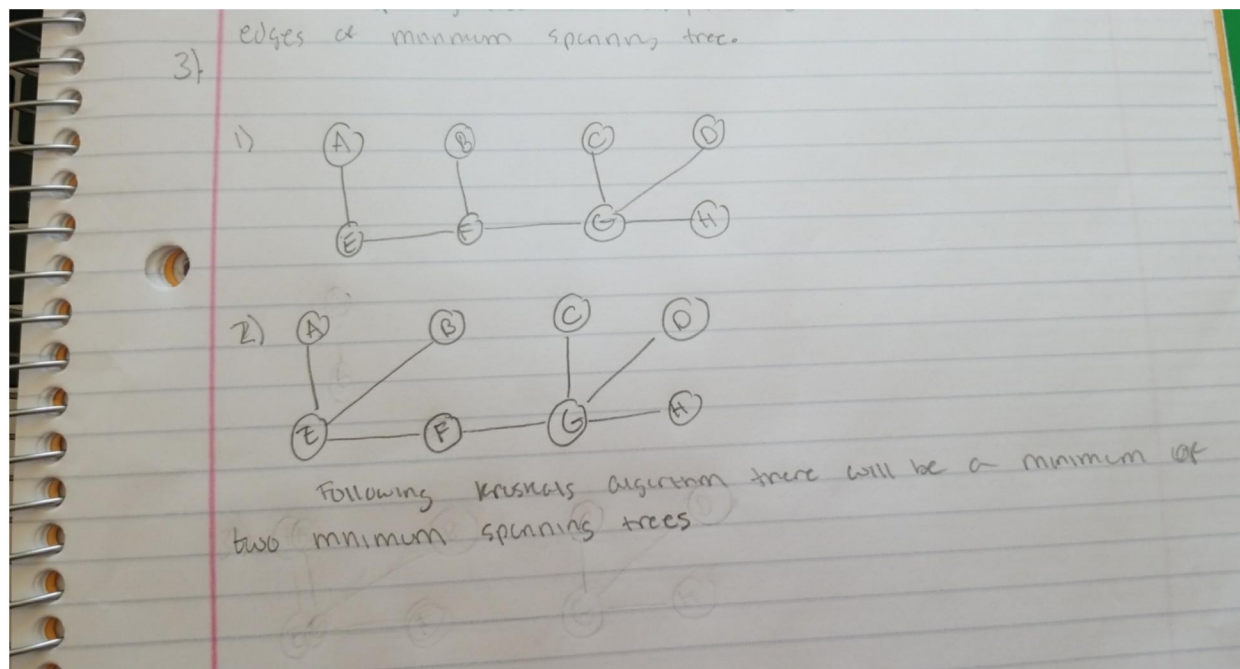 edges of minmum spannng tree.
3)
1) A B C D
E F G H
2) A B C D
E F G H
Following kruskals algorithm there will be a minimum of
two mnimum spanning trees